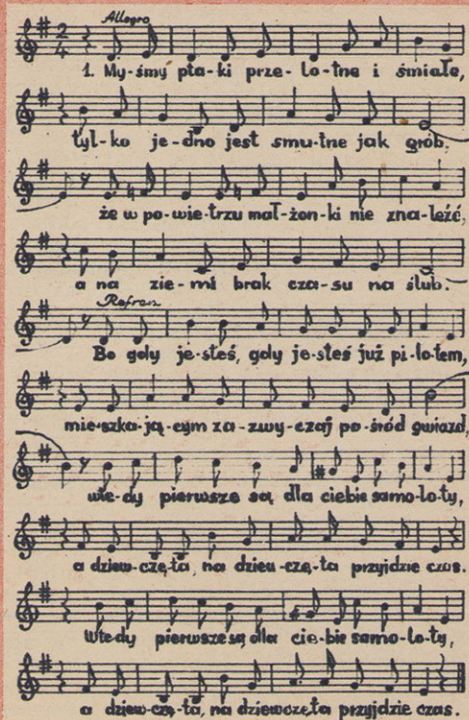 Allegro
2
4
1. My-śmy pta-ki prze-lo-tne i śmiałe,
tyl-ko je-dno jest smu-tne jak grób.
że w po-wie-trzu mał-żon-ki nie zna-leźć,
a na zie-mi brak cza-su na ślub.
Refren
Bo gdy je-steś, gdy je-steś już pi-lo-tem,
mie-szka-ją-cym za-zwy-czaj po-śród gwiazd,
wte-dy pierwsze są dla ciebie samo-lo-ty,
a dziew-czę-ta, na dziew-czę-ta przyjdzie czas.
Wtedy pierwsze są dla cie-bie samo-lo-ty,
a dziew-czę-ta, na dziewczęta przyjdzie czas.